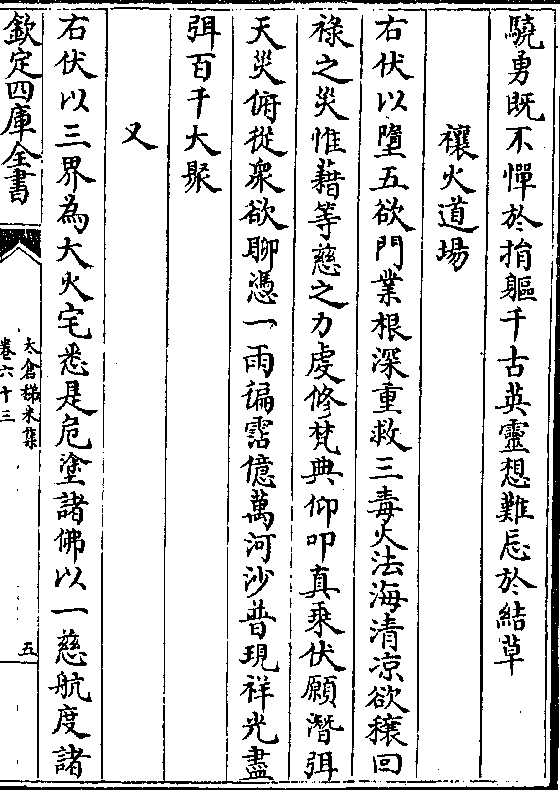 驍勇既不憚於捐軀千古英靈想難忘於結草
禳火道場
右伏以墮五欲門業根深重救三毒火法海清凉欲穰回
祿之災惟藉等慈之力虔修梵典仰叩真乘伏願潛弭
天災俯從衆欲聊憑一雨徧霑億萬河沙普現祥光盡
弭百千大聚
又
右伏以三界為大火宅悉是危塗諸佛以一慈航度諸
欽定四庫全書
太倉稊米集
卷六十三
五